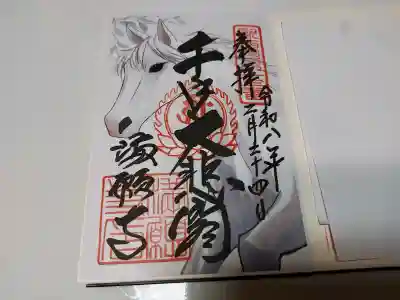 奉拝
令和八年二月二十四日
千手大悲閣
満願寺